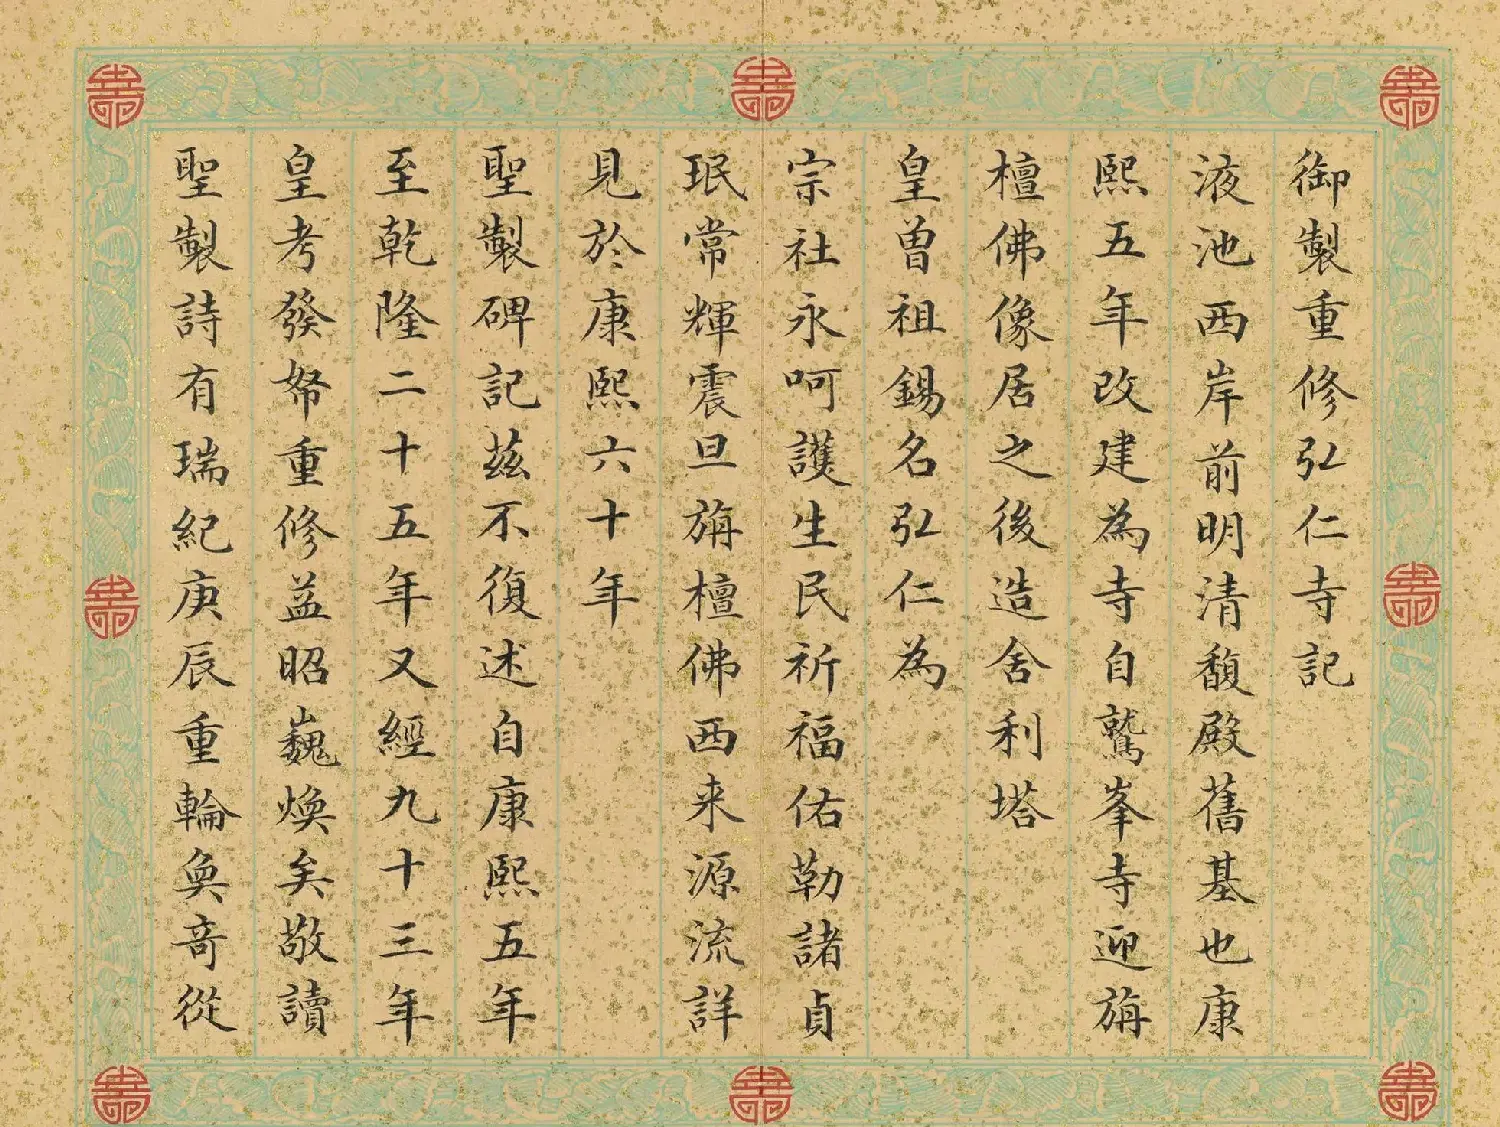 御製重修弘仁寺記
液池西岸前明清馥殿舊基也康
熙五年改建為寺自鷲峯寺迎旃
檀佛像居之後造舍利塔
皇曾祖錫名弘仁為
宗社永呵護生民祈福佑勒諸貞
珉常輝震旦旃檀佛西来源流詳
見於康熙六十年
聖製碑記茲不復述自康熙五年
至乾隆二十五年又經九十三年
皇考發帑重修益昭巍煥矣敬讀
聖製詩有瑞紀庚辰重輪奐竒從